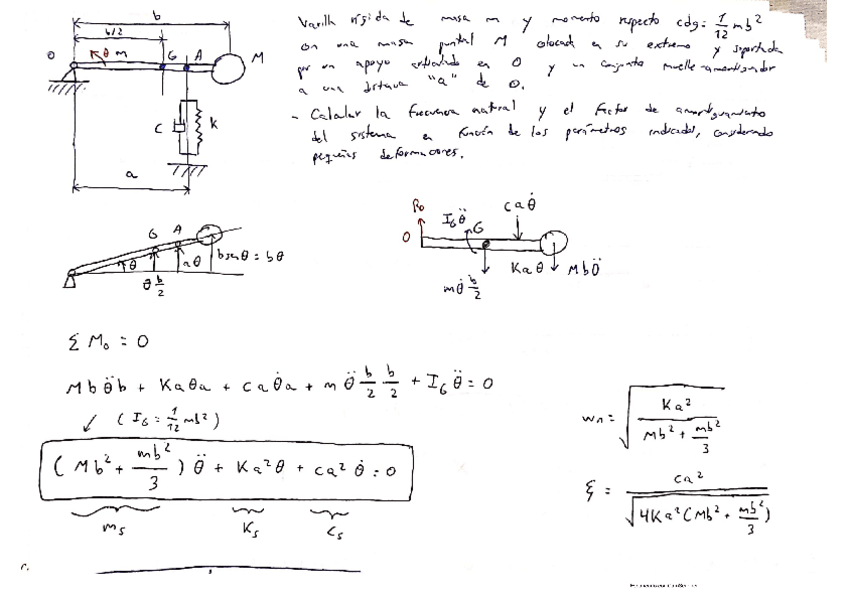 Varilla rígida de masa m y momento respecto cdg: 1/12 mb²
con una masa puntal M colocada en su extremo y soportada
por un apoyo articulado en O y un conjunto muelle-amortiguador
a una distancia "a" de O.
- Calcular la frecuencia natural y el factor de amortiguamiento
del sistema en función de los parámetros indicados, considerando
pequeñas deformaciones.
b
b/2
O θ m G A M
C K
a
G A
θ θ b/2 aθ b senθ = bθ
R₀ I_G θ̈ G c a θ̇
O
m θ̈ b/2 K a θ M b θ̈
Σ M₀ = 0
M b θ̈ b + K a θ a + c a θ̇ a + m θ̈ b/2 b/2 + I_G θ̈ = 0
↙ ( I_G = 1/12 mb² )
( M b² + mb²/3 ) θ̈ + K a² θ + c a² θ̇ = 0
m_s K_s c_s
w_n = √( K a² / ( M b² + mb²/3 ) )
ξ = c a² / √( 4 K a² ( M b² + mb²/3 ) )